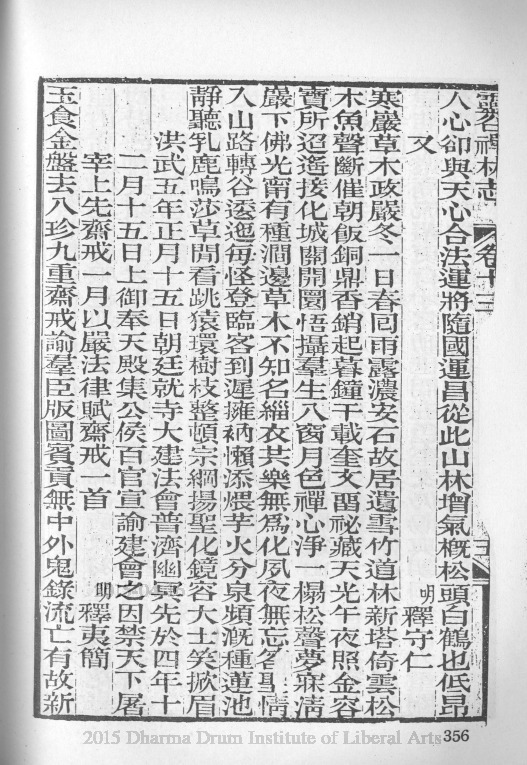 靈谷禪林志 卷十三 五
人心卻與天心合法運將隨國運昌從此山林增氣槪松頭白鶴也低昂
又 明 釋守仁
寒嚴草木政嚴冬一日春回雨露濃安石故居遺雪竹道林新塔倚雲松
木魚聲斷催朝飯銅鼎香銷起暮鐘千載奎文畱祕藏天光午夜照金容
寶所迢遙接化城關開圜悟攝羣生八窗月色禪心淨一榻松聲夢寐淸
嚴下佛光甯有種澗邊草木不知名緇衣共樂無爲化夙夜無忘答聖情
入山路轉谷逶迤每怪登臨客到遲擁衲懶添煨芋火分泉頻漑種蓮池
靜聽乳鹿鳴莎草閒看跳猿環樹枝整頓宗綱揚聖化鏡容大士笑掀眉
洪武五年正月十五日朝廷就寺大建法會普濟幽冥先於四年十
二月十五日上御奉天殿集公侯百官宣諭建會之因禁天下屠
宰上先齋戒一月以嚴法律賦齋戒一首
明 釋夷簡
玉食金盤去八珍九重齋戒諭羣臣版圖賓貢無中外鬼錄流亡有故新
2015 Dharma Drum Institute of Liberal Arts
356